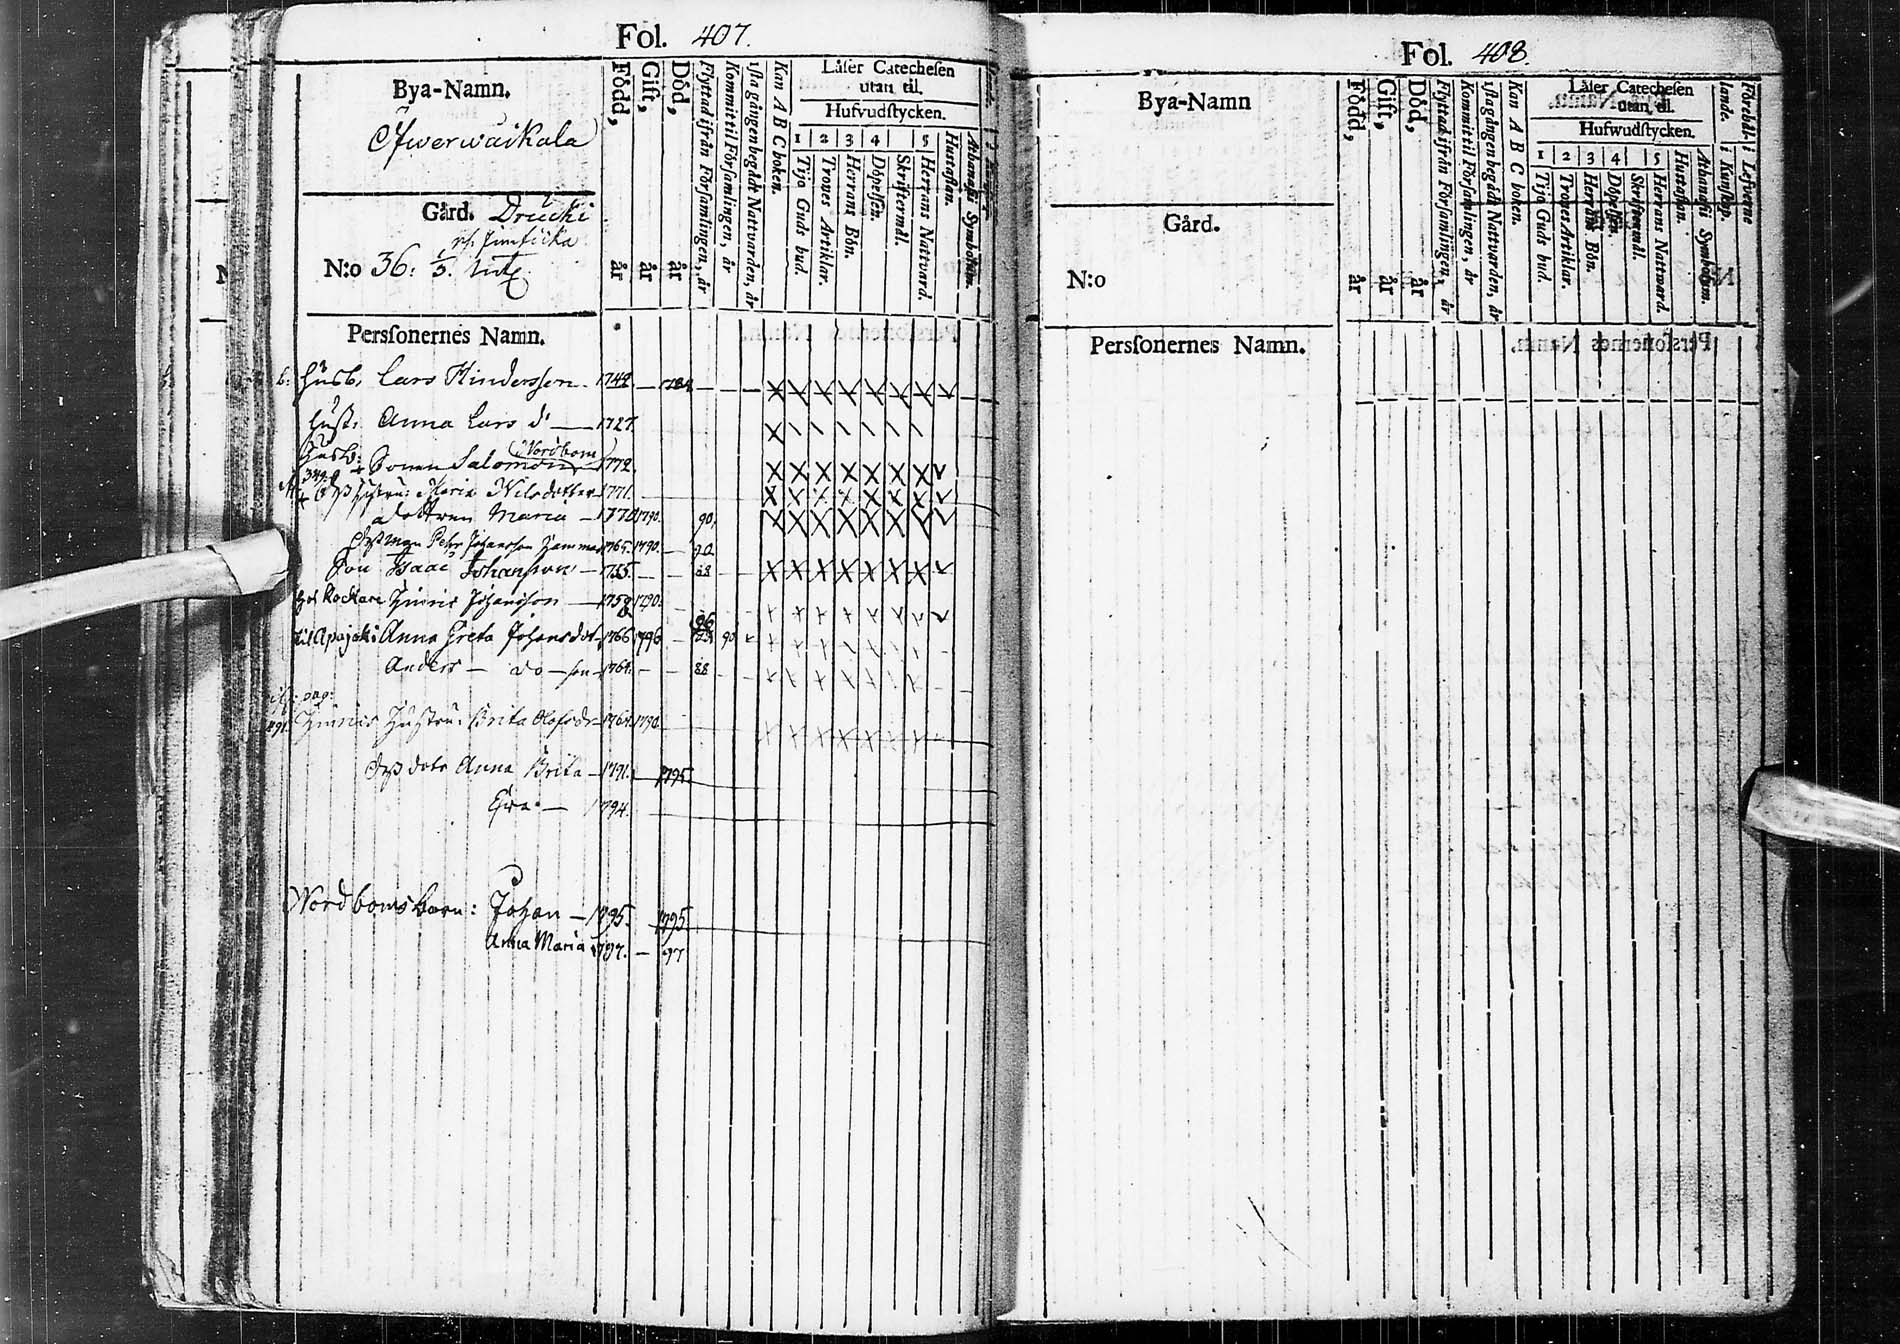 Fol. 407.
Bya-Namn.
Öfwerwäikala
Gård. Drucki
N:o 36. 1/3.
Född, år
Gift, år
Död, år
Flyttad ifrån Församlingen, år
Kommit til Församlingen, år
1sta gången begådt Nattvarden, år
Kan A B C boken.
Läser Catechesen
utan til.
Hufvudstycken.
1 2 3 4 5
Tijo Guds bud.
Trones Artiklar.
Herrans Bön.
Döpelsen.
Skriftermål.
Herrans Nattvard.
Hustaflan.
Athanasii Symbolum.
Perssonernes Namn.
b. Husb. Lars Hindersson 1742 1784
Hust. Anna Lars d:r 1727.
Husb: Sonen Salomon Nordbom 1772.
Hustru: Maria Nilsdotter 1771.
dottren Maria 1770 1790. 90.
Pehr Johansson 1765. 1790. 90
Son Isaac Johansson 1755. 88
Rockare Hinric Johansson 1759 1790.
til Apajaki Anna Greta Johansdot. 1766 1796 96 90
Anders do son 1764. 88
pag:
Hinrics Hustru: Brita Olofsdr 1764 1790.
dotr Anna Brita 1791. 1795
Ewa 1794.
Nordboms barn: Johan 1795. 1795
Anna Maria 1797. 97
Fol. 408.
Bya-Namn
Gård.
N:o
Född, år
Gift, år
Död, år
Flyttad ifrån Församlingen, år
Kommit til Församlingen, år
1sta gången begådt Nattvarden, år
Kan A B C boken.
Läser Catechesen
utan til.
Hufwudstycken.
1 2 3 4 5
Tijo Guds bud.
Trones Artiklar.
Herrans Bön.
Döpelsen.
Skriftermål.
Herrans Nattward.
Hustaflan.
Athanasii Symbolum.
Förehål-
lande.
i Kunskap.
i Lefverne
Perssonernes Namn.